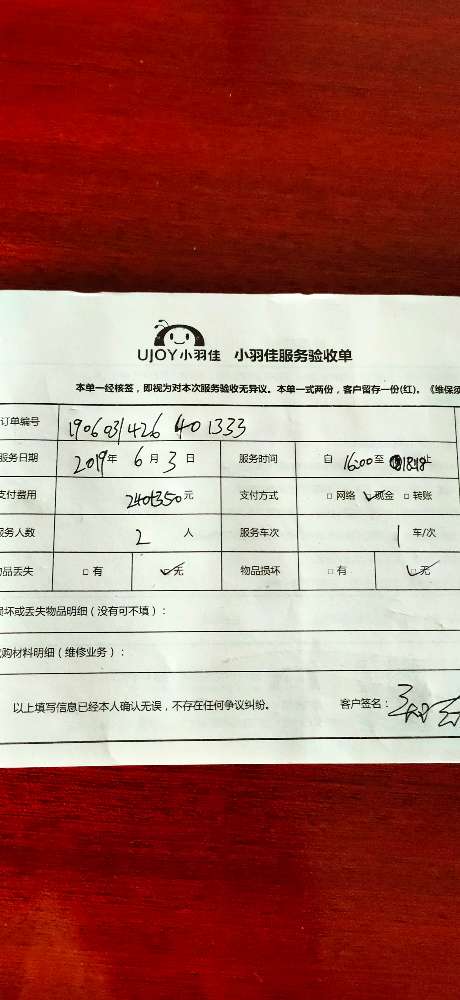 UJOY小羽佳 小羽佳服务验收单
本单一经核签，即视为对本次服务验收无异议。本单一式两份，客户留存一份(红)。《维保须
订单编号 190603142640 1333
服务日期 2019年 6月 3日 服务时间 自 16:00至 18:18止
支付费用 240+350元 支付方式 □网络 ☑现金 □转账
服务人数 2 人 服务车次 1 车/次
物品丢失 □有 ☑无 物品损坏 □有 ☑无
损坏或丢失物品明细（没有可不填）：
代购材料明细（维修业务）：
以上填写信息已经本人确认无误，不存在任何争议纠纷。 客户签名：